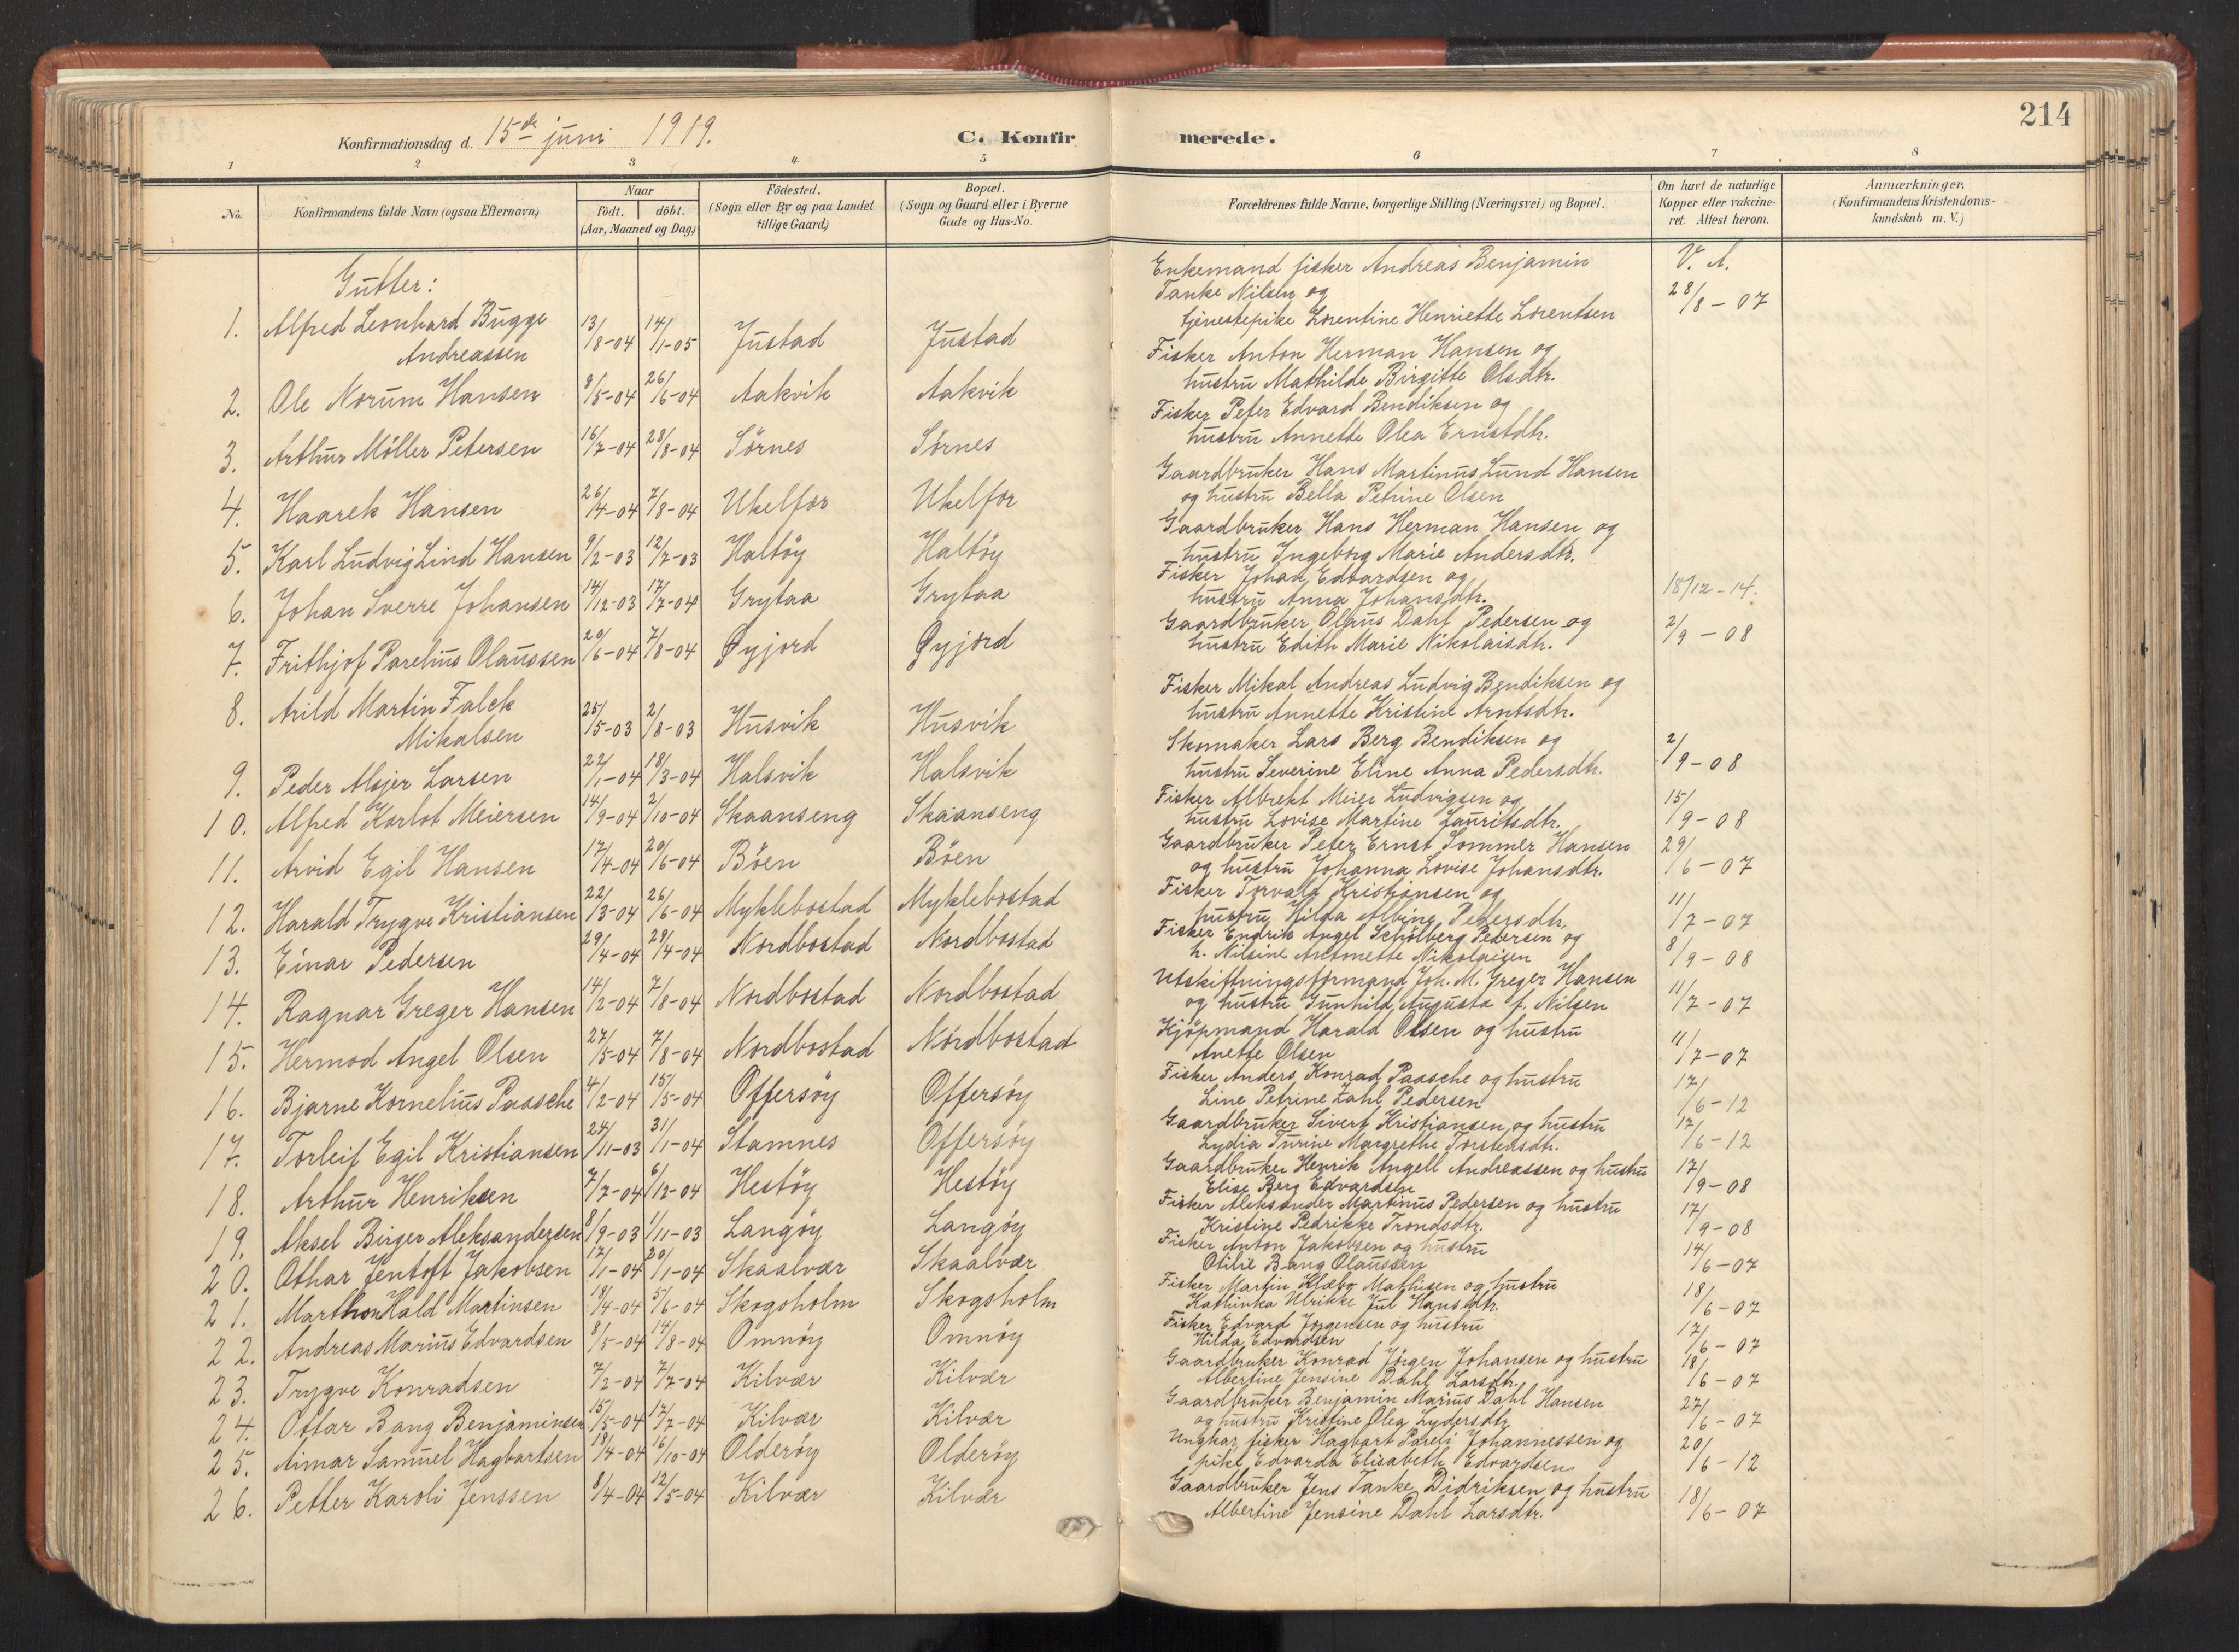 214
Konfirmationsdag d. 15de juni 1919.
C. Konfirmerede.
1 2 3 4 5 6 7 8
No. Konfirmandens fulde Navn (ogsaa Efternavn) Naar født. døbt. (Aar, Maaned og Dag) Födested. (Sogn eller By og paa Landet tillige Gaard) Bopæl. (Sogn og Gaard eller i Byerne Gade og Hus-No. Forældrenes fulde Navne, borgerlige Stilling (Næringsvei) og Bopæl. Om havt de naturlige Kopper eller vakcineret. Attest herom. Anmærkninger. (Konfirmandens Kristendomskundskab m. V.)
Gutter:
V. A.
1. Alfred Leonhard Bugge Andreassen 13/8-04 14/1-05 Justad Justad Enkemand fisker Andreas Benjamin Tanke Nilsen og tjenestepike Lorentine Henriette Lorentsen 28/8-07
2. Ole Norum Hansen 8/5-04 26/6-04 Aakvik Aakvik Fisker Anton Herman Hansen og hustru Mathilde Birgitte Olsdtr.
3. Arthur Möller Petersen 16/7-04 28/8-04 Sörnes Sörnes Fisker Peter Edvard Bendiksen og hustru Annette Olea Ernstdtr.
4. Haarek Hansen 26/4-04 7/8-04 Ukelfor Ukelfor Gaardbruker Hans Martinus Lund Hansen og hustru Bella Petrine Olsen
5. Karl Ludvig Lind Hansen 9/2-03 12/7-03 Haltöy Haltöy Gaardbruker Hans Herman Hansen og hustru Ingeborg Marie Andersdtr.
6. Johan Sverre Johansen 14/12-03 17/7-04 Grytaa Grytaa Fisker Johan Edvardsen og hustru Anna Johansdtr. 18/12-14.
7. Frithjof Parelius Olaussen 20/6-04 7/8-04 Øyjord Øyjord Gaardbruker Olaus Dahl Pedersen og hustru Edith Marie Nikolaisdtr. 2/9-08
8. Arild Martin Falck Mikalsen 25/5-03 2/8-03 Husvik Husvik Fisker Mikal Andreas Ludvig Bendiksen og hustru Annette Kristine Arntsdtr.
9. Peder Alsjer Larsen 22/1-04 18/3-04 Halsvik Halsvik Skomaker Lars Berg Bendiksen og hustru Severine Eline Anna Pedersdtr. 2/9-08
10. Alfred Karlot Meiersen 14/9-04 2/10-04 Skaanseng Skaanseng Fisker Albrekt Meier Ludvigsen og hustru Lovise Martine Lauritsdtr. 15/9-08
11. Arvid Egil Hansen 17/4-04 20/6-04 Böen Böen Gaardbruker Peter Ernst Sommer Hansen og hustru Johanna Lovise Johansdtr. 29/6-07
12. Harald Trygve Kristiansen 22/3-04 26/6-04 Myklebostad Myklebostad Fisker Torvald Kristiansen og hustru Hilda Albine Pedersdtr. 11/7-07
13. Einar Pedersen 29/4-04 29/4-04 Nordbostad Nordbostad Fisker Endrik Angel Schölberg Pedersen og h. Nilsine Antonette Nikolaisen 8/9-08
14. Ragnar Greger Hansen 14/2-04 7/8-04 Nordbostad Nordbostad Utskiftningsformand Joh. M. Greger Hansen og hustru Gunhild Augusta f. Nilsen 11/7-07
15. Hermod Angel Olsen 27/5-04 7/8-04 Nordbostad Nordbostad Kjöpmand Harald Olsen og hustru Anette Olsen 11/7-07
16. Bjarne Kornelius Paasche 4/2-04 15/5-04 Offersöy Offersöy Fisker Anders Konrad Paasche og hustru Line Petrine Zahl Pedersen 17/6-12
17. Torleif Egil Kristiansen 24/11-03 31/1-04 Stamnes Offersöy Gaardbruker Sivert Kristiansen og hustru Lydia Turine Margrethe Torstensdtr. 17/6-12
18. Arthur Henriksen 7/7-04 6/12-04 Hestöy Hestöy Gaardbruker Henrik Angell Andreassen og hustru Elise Berg Edvardsen 17/9-08
19. Aksel Birger Aleksandersen 8/9-03 1/11-03 Langöy Langöy Fisker Aleksander Martinus Pedersen og hustru Kristine Pedrikke Trondsdtr. 17/9-08
20. Othar Jentoft Jakobsen 17/1-04 20/1-04 Skaalvær Skaalvær Fisker Anton Jakobsen og hustru Otilie Bang Olaussen 14/6-07
21. Marthon Hald Martinsen 18/4-04 5/6-04 Skogsholm Skogsholm Fisker Martin Klæbo Mathisen og hustru Kathinka Ulrikke Jul Hansdtr. 18/6-07
22. Andreas Marius Edvardsen 8/5-04 14/8-04 Omnöy Omnöy Fisker Edvard Jørgensen og hustru Hilda Edvardsen 17/6-07
23. Trygve Konradsen 7/2-04 7/7-04 Kilvær Kilvær Gaardbruker Konrad Jörgen Johansen og hustru Albertine Jensine Dahl Larsdtr. 18/6-07
24. Ottar Bang Benjaminsen 15/5-04 17/7-04 Kilvær Kilvær Gaardbruker Benjamin Marius Dahl Hansen og hustru Kristine Olea Lydersdtr. 27/6-07
25. Aimar Samuel Hagbartsen 18/4-04 16/10-04 Olderöy Olderöy Ungkar fisker Hagbart Pareli Johannessen og pike Edvarda Elisabeth Edvardsen 20/6-12
26. Petter Karoli Jenssen 8/4-04 12/5-04 Kilvær Kilvær Gaardbruker Jens Tanke Didriksen og hustru Albertine Jensine Dahl Larsdtr. 18/6-07